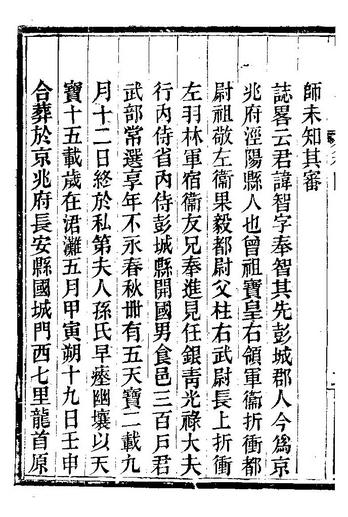 師未知其審
誌畧云君諱智字奉智其先彭城郡人今爲京
兆府涇陽縣人也曾祖寶皇右領軍衞折衝都
尉祖敬左衞果毅都尉父柱右武尉長上折衝
左羽林軍宿衞友兄奉進見任銀青光祿大夫
行內侍省內侍彭城縣開國男食邑三百戸君
武部常選享年不永春秋卌有五天寶二載九
月十二日終於私第夫人孫氏早瘞幽壤以天
寶十五載歲在涒灘五月甲寅朔十九日壬申
合葬於京兆府長安縣國城門西七里龍首原